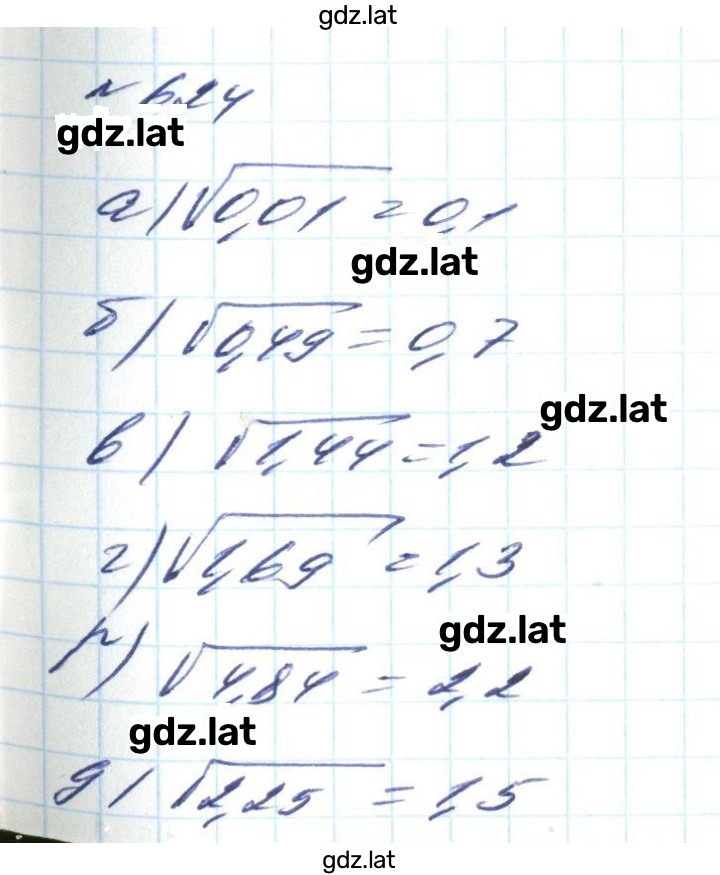 gdz.lat
№ 624
gdz.lat
а) √0,01 = 0,1
gdz.lat
б) √0,49 = 0,7
gdz.lat
в) √1,44 = 1,2
г) √1,69 = 1,3
gdz.lat
г) √4,84 = 2,2
gdz.lat
д) √2,25 = 1,5
gdz.lat